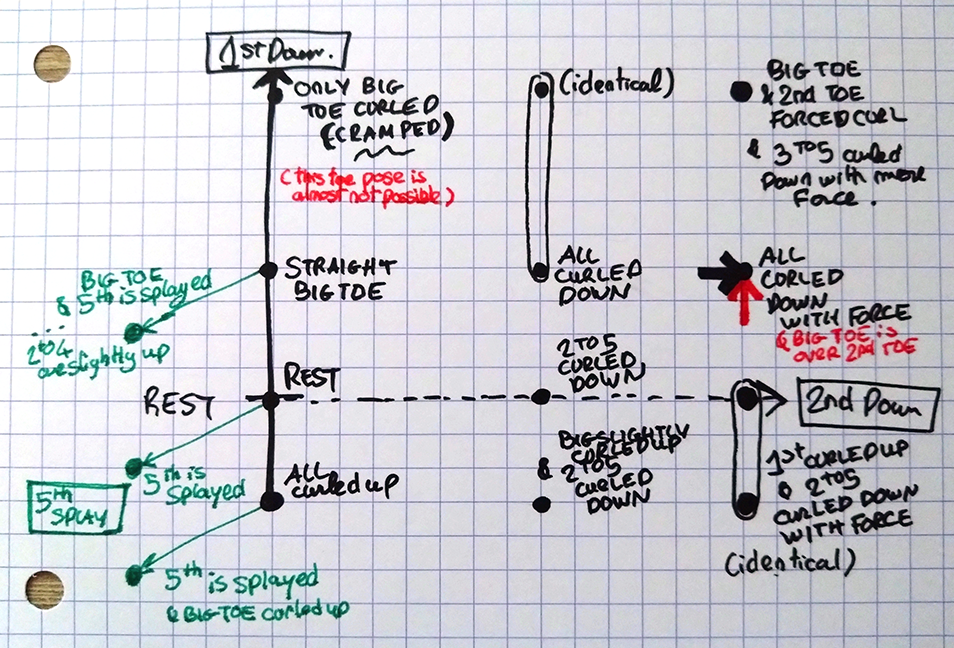 1st Down.
ONLY BIG
TOE CURLED
(CRAMPED)
(this toe pose is
almost not possible)
(identical)
BIG TOE
& 2nd TOE
FORCED CURL
& 3 TO 5 curled
Down with more
Force.
BIG TOE
& 5th is splayed
...
2 to 4
are slightly up
STRAIGHT
BIG TOE
ALL
CURLED
DOWN
ALL
CORLED
DOWN
WITH FORCE
& BIG TOE is
OVER 2nd TOE
REST
REST
2 TO 5
CURLED
DOWN
2nd Down
5th is
Splayed
5th
SPLAY
ALL
curled up
BIG SLIGHTLY
CORLED UP
& 2 TO 5
CURLED
DOWN
1st CURLED UP
& 2 TO 5
CURLED DOWN
WITH FORCE
(identical)
5th is splayed
& BIG TOE corled up